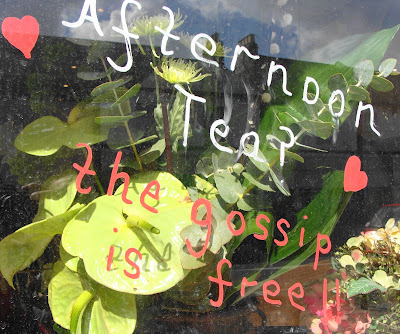 Afternoon
Tea?
the gossip
is free!!